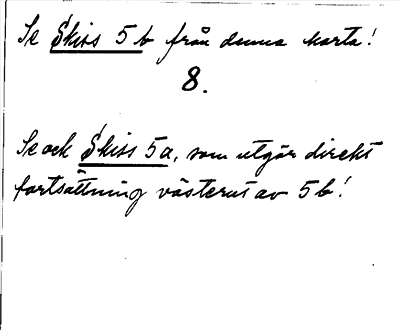 Se Skiss 5b från denna karta!
8.
Se ock Skiss 5a, som utgör direkt
fortsättning västerut av 5b!